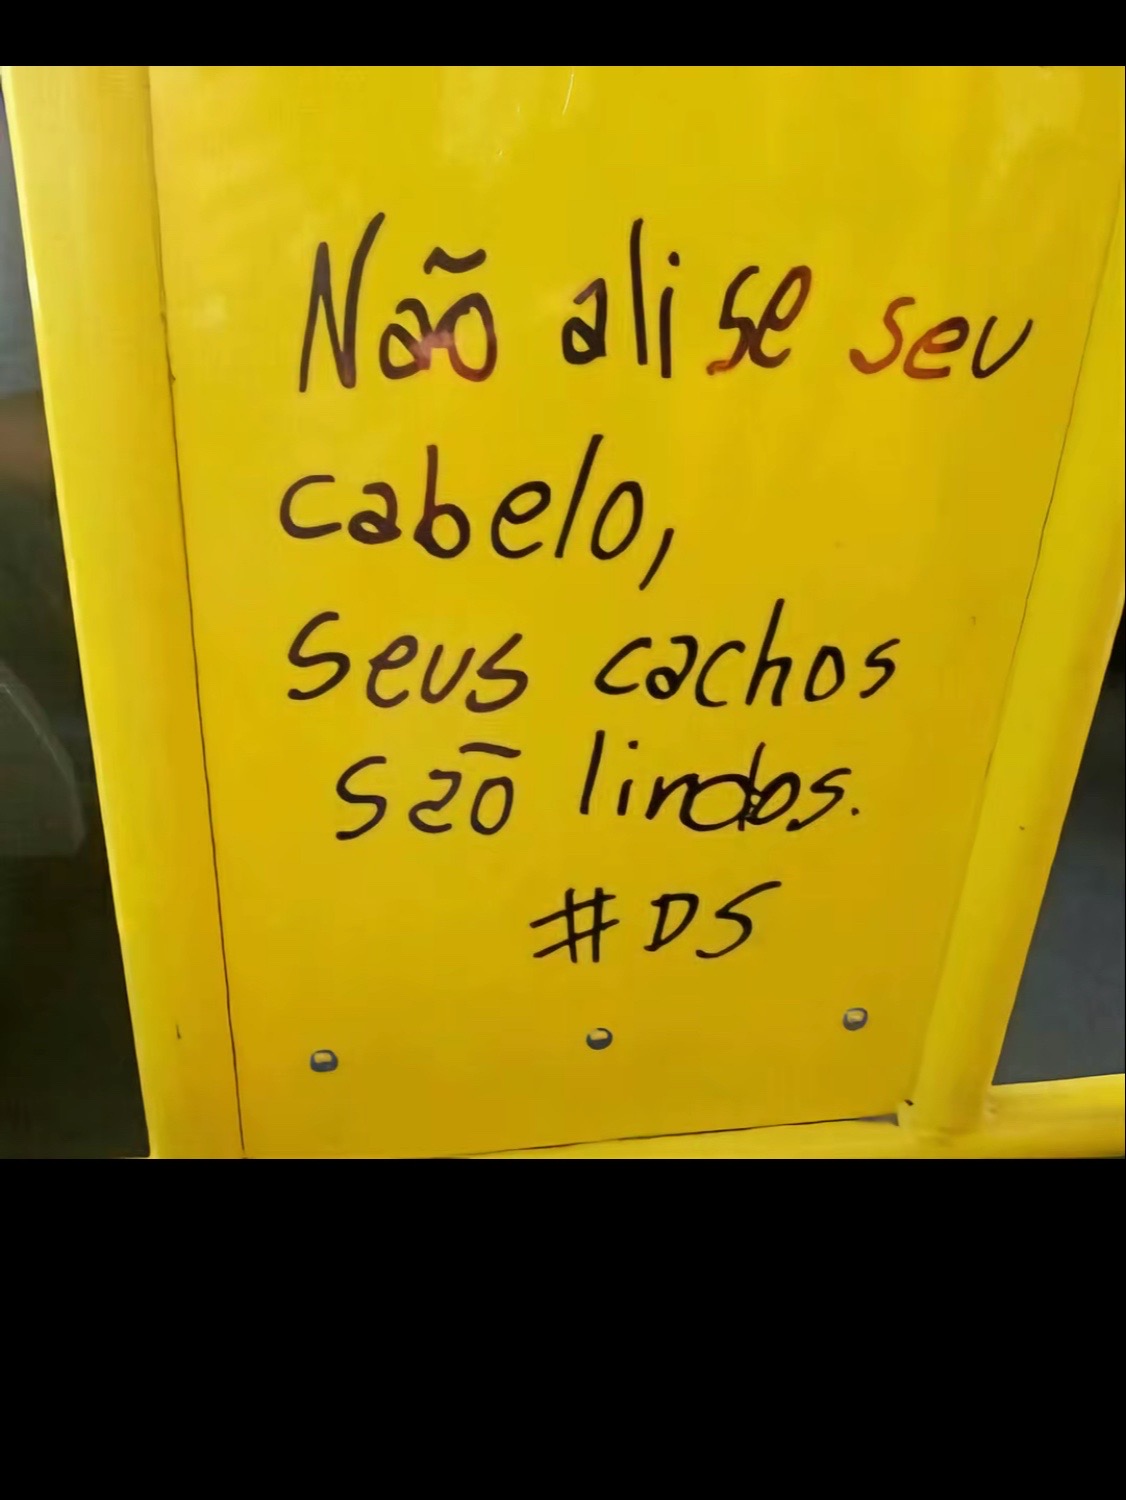 Não alise seu
cabelo,
seus cachos
são lindos.
#DS